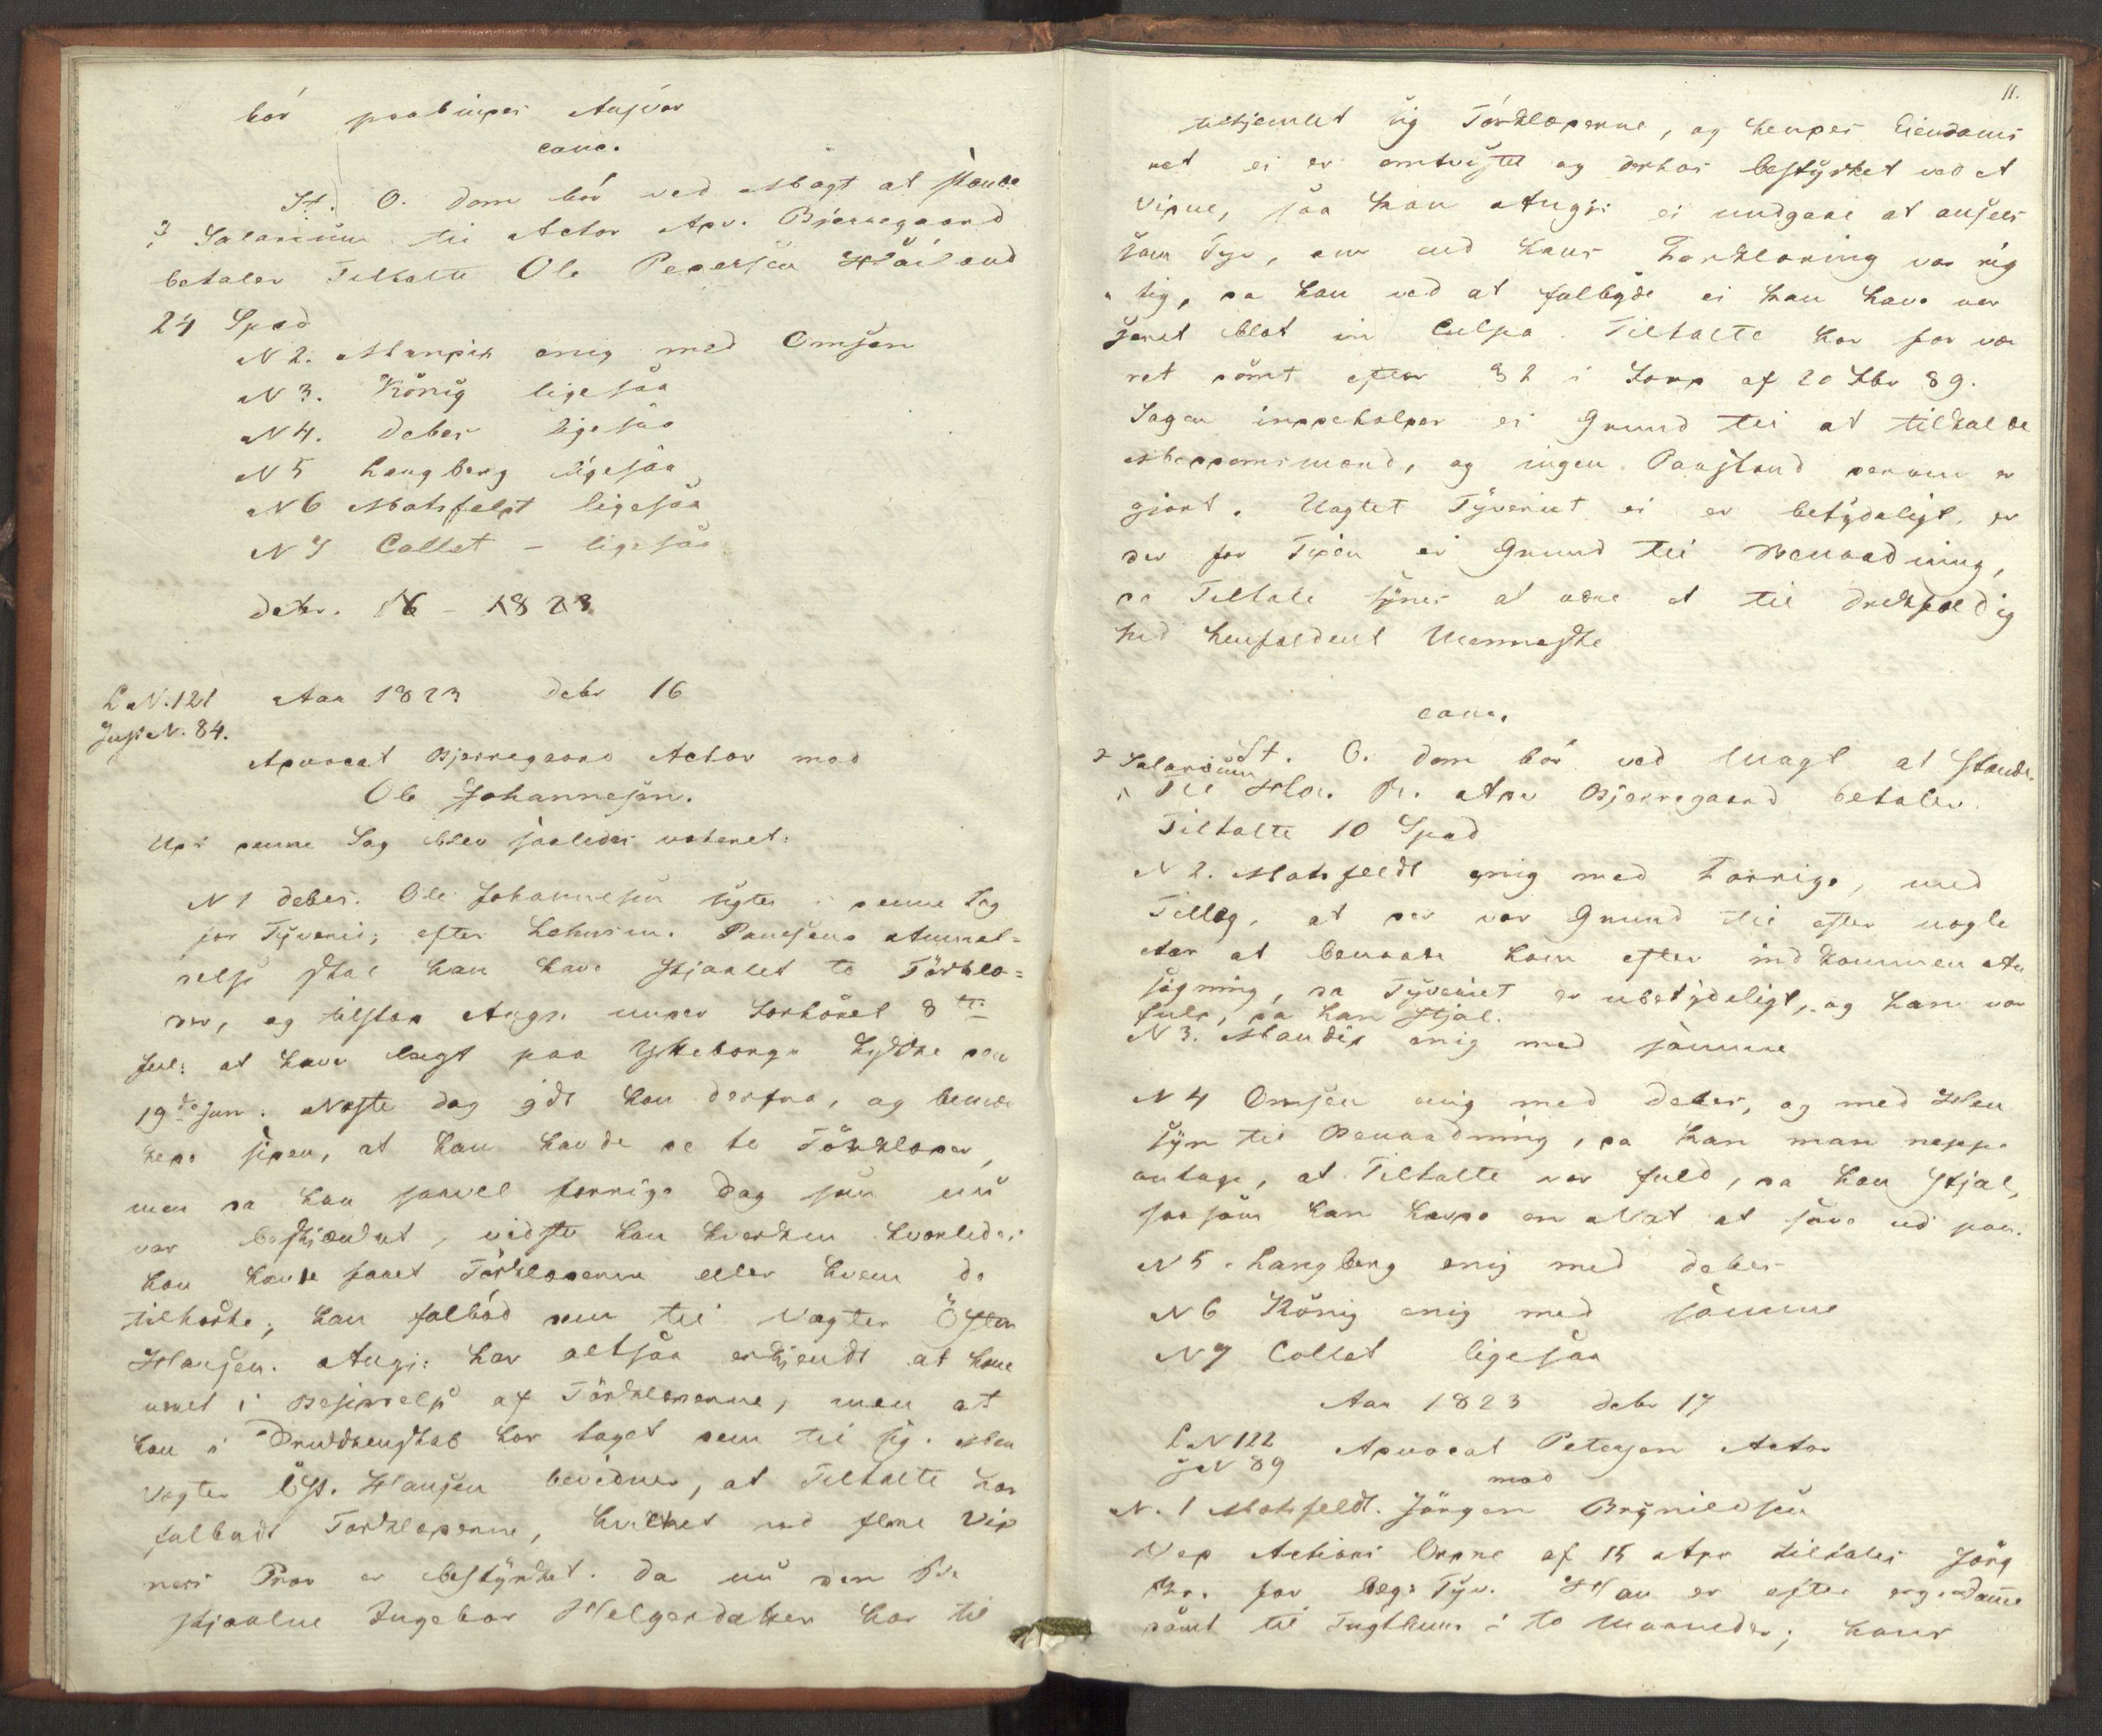 bör paadømes Ansvar
conc.
St. O. Dom bör ved Magt at stande
I Salarium til Actor Adv. Bjerregaard
betaler Tiltalte Ole Pedersen Höiland
24 Spd
N 2. Mandix enig med Omsen
N 3. König ligesaa
N 4. Debes ligesaa
N 5 Langberg ligesaa
N 6 Motzfeldt ligesaa
N 7 Collet - ligesaa
Debr. 16 - 1823
L N. 121 Aar 1823 Debr 16
Just N. 84.
Advocat Bjerregaard Actor mod
Ole Johannesön.
Udi denne Sag blev saaledes voteret:
N 1 Debes. Ole Johannesen sigtes i denne Sag
for Tyverie; efter Lehnsm. Anmel=
delse skal han have stjaalet to Törklæ=
der, og tilstod Angj. under Forhöret 8de
Jul: at have lagt paa hytte den
19de Jun. Næste Dag gik han derfra, og bemær
kede siden, at han havde de to Törklæder,
men da han saavel forrige Dag som nu
var beskjænket, vidste han hverken hvorledes
han havde faaet Törklæderne eller hvem de
tilhørte; han falböd dem til Vægter Östen
Hansen. Angj: har altsaa erkjendt at have
været i Besiddelse af Törklæderne, men at
han i Drukkenskab har taget dem til sig. Men
Vægter Öst. Hansen bevidner, at Tiltalte har
falbudt Torklæderne, hvilket ved flere Vid
ners Prov er bestyrket. Da nu den Be
stjaalne Ingebor Helgerdatter har til
11.
vehjemlet sig Törklæderne, og hendes Eiendoms
ret ei er omtvistet og derhos bestyrket ved et
Vidne, saa kan Angj: ei undgaae at ansees
som Tyv, om end hans Forklaring var rig
tig, da han ved at falbyde ei kan have ver
seret blot in Culpa. Tiltalte har för væ
ret dömt efter § 2 i Ford af 20 Fbr 89.
Sagen indeholder ei Grund til at tilkalde
Meddomsmænd, og ingen Paastand derom er
gjort. Uagtet Tyveriet ei er betydeligt, er
der for Tiden ei Grund til Benaadning,
da Tiltalte synes at være et til Drikfældig
hed henfaldent Menneske
conc.
St. O. Dom bör ved Magt at stande.
I Salarium
til Höi. R. Adv Bjerregaard betaler
Tiltalte 10 Spd
N 2. Motzfeldt enig med Forrige, med
Tillæg, at der var Grund til efter nogle
Aar at benaade ham efter indkommen An
sögning, da Tyveriet er ubetydeligt, og han var
fuld, da han stjal.
N 3. Mandix enig med samme
N 4 Omsen enig med Debes, og med Hen
syn til Benaadning, da kan man neppe
antage, at Tiltalte var fuld, da han stjal,
saasom han havde en Nat at sove ud paa.
N 5. Langberg enig med Debes
N 6 König enig med samme
N 7 Collet ligesaa
Aar 1823 Debr 17
L N 122 Advocat Petersen Actor
J N 89 mod
N. 1 Motzfeldt. Jörgen Brynildsen
Ved Actions Ordre af 15 Apr tiltales Jörg
Br. for beg: Tyv. Han er efter
dömt til Tugthuus i to Maaneder; hans